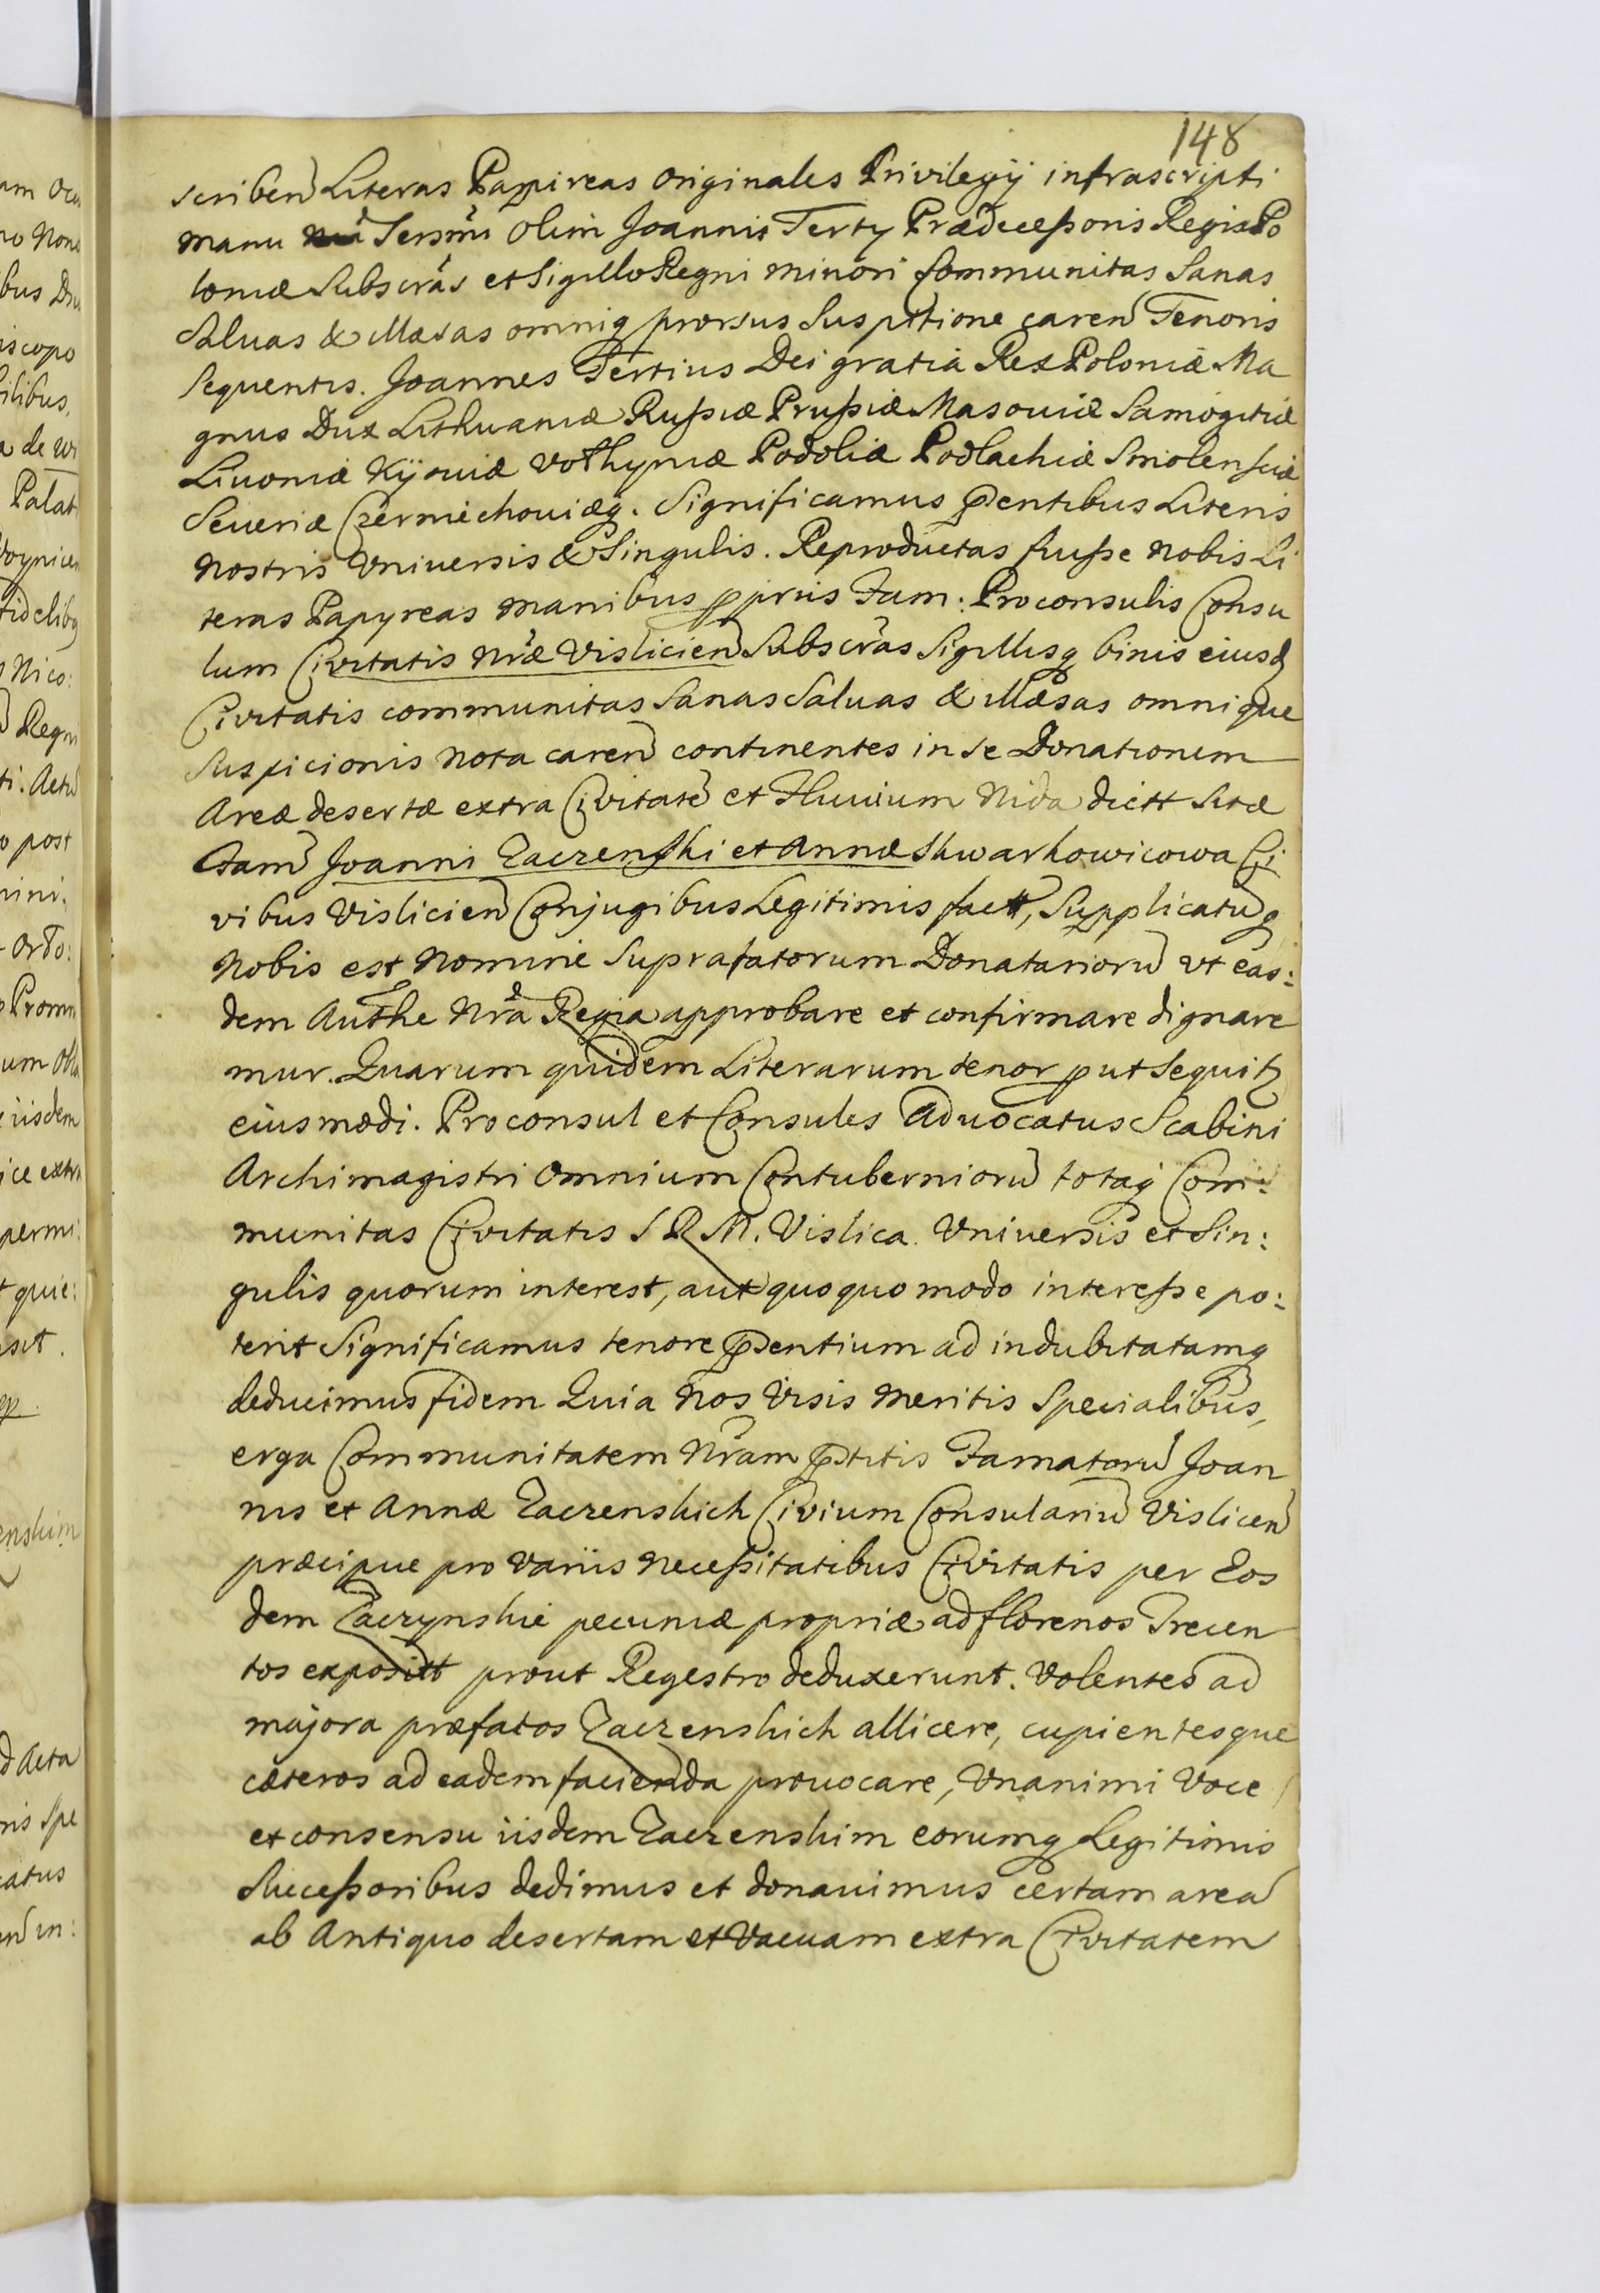 148
scriben Literas Papireas Originales Privilegij infrascripti
manu Sermi olim Joannis Terty Prædecessoris Regis Po
loniæ Subscras et Sigillo Regni minori Communitas Sanas
Saluas & illæsas omniq prorsus Suspitione caren Tenoris
Sequentis. Joannes Tertius Dei gratia Rex Poloniæ Ma
gnus Dux Lithuaniæ Russiæ Prussiæ Masouiæ Samogitiæ
Liuoniæ Kijouiæ Volhyniæ Podoliæ Podlachiæ Smolensciæ
Seueriæ Czerniechouiæq. Significamus pntibus Literis
nostris Vniuersis & Singulis. Reproductas fuisse nobis Li
teras Papyreas manibus ppriis Fam: Proconsulis Consu
lum Civitatis nræ Vislicien Subscras Sigillisq binis eiusd
Civitatis communitas Sanas Saluas & illæsas omnique
Suspicionis nota caren continentes in se Donationem
Areæ desertæ extra Civitate et Fluuium Nida dictt Sitæ
Fam Joanni Zaczenski et Annæ Skwarkowicowa Ci
vibus Vislicien Conjugibus Legitimis factt, Supplicatuq
Nobis est Nomine Suprafatorum Donatarioru vt eas:
dem Authe Nra Regia approbare et confirmare dignare
mur. Quarum quidem Literarum tenor put Sequit
eiusmodi. Proconsul et Consules Aduocatus Scabini
Archimagistri Omnium Contubernioru totaq Com:
munitas Civitatis S R M. Vislica. Vniuersis et Sin:
gulis quorum interest, aut quoquo modo interesse po:
terit Significamus tenore pntium ad indubitatamq
deducimus fidem Quia Nos Visis meritis Specialibus,
erga Communitatem Nram pstitis Famatoru Joan
nis et Annæ Zaczenskich Civium Consulariu Vislicen
præcipue pro variis necessitatibus Civitatis per Eos
dem Zaczynskie pecuniæ propriæ ad florenos Trecen
tos expositt prout Regestro deduxerunt. Volentes ad
majora præfatos Zaczenskich allicere, cupientesque
cæteros ad eadem facienda prouocare, Vnanimi Voce
et consensu iisdem Zaczenskim eorumq Legitimis
Successoribus dedimus et donauimus certam area
ab Antiquo desertam et Vacuam extra Civitatem